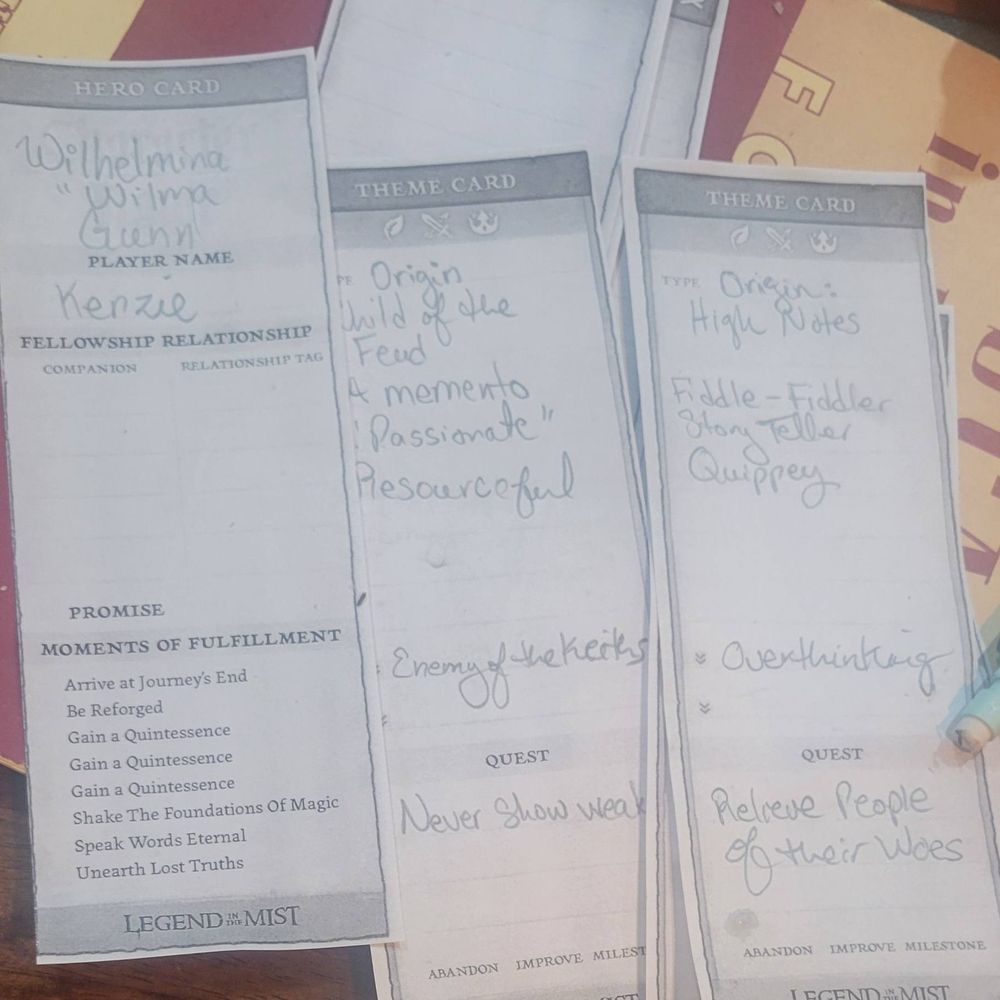 HERO CARD
Wilhelmina
"Wilma
Gunn
PLAYER NAME
Kenzie
FELLOWSHIP RELATIONSHIP
COMPANION RELATIONSHIP TAG
PROMISE
MOMENTS OF FULFILLMENT
Arrive at Journey's End
Be Reforged
Gain a Quintessence
Gain a Quintessence
Gain a Quintessence
Shake The Foundations Of Magic
Speak Words Eternal
Unearth Lost Truths
LEGEND IN THE MIST
THEME CARD
PE Origin
hild of the
Feud
A memento
"Passionate"
Resourceful
Enemy of the Keiths
QUEST
Never Show weak
ABANDON IMPROVE MILEST
THEME CARD
TYPE Origin:
High Notes
Fiddle - Fiddler
Story Teller
Quippey
Overthinking
QUEST
Relieve People
of their Woes
ABANDON IMPROVE MILESTONE
LEGEND IN THE MIST
FO
in